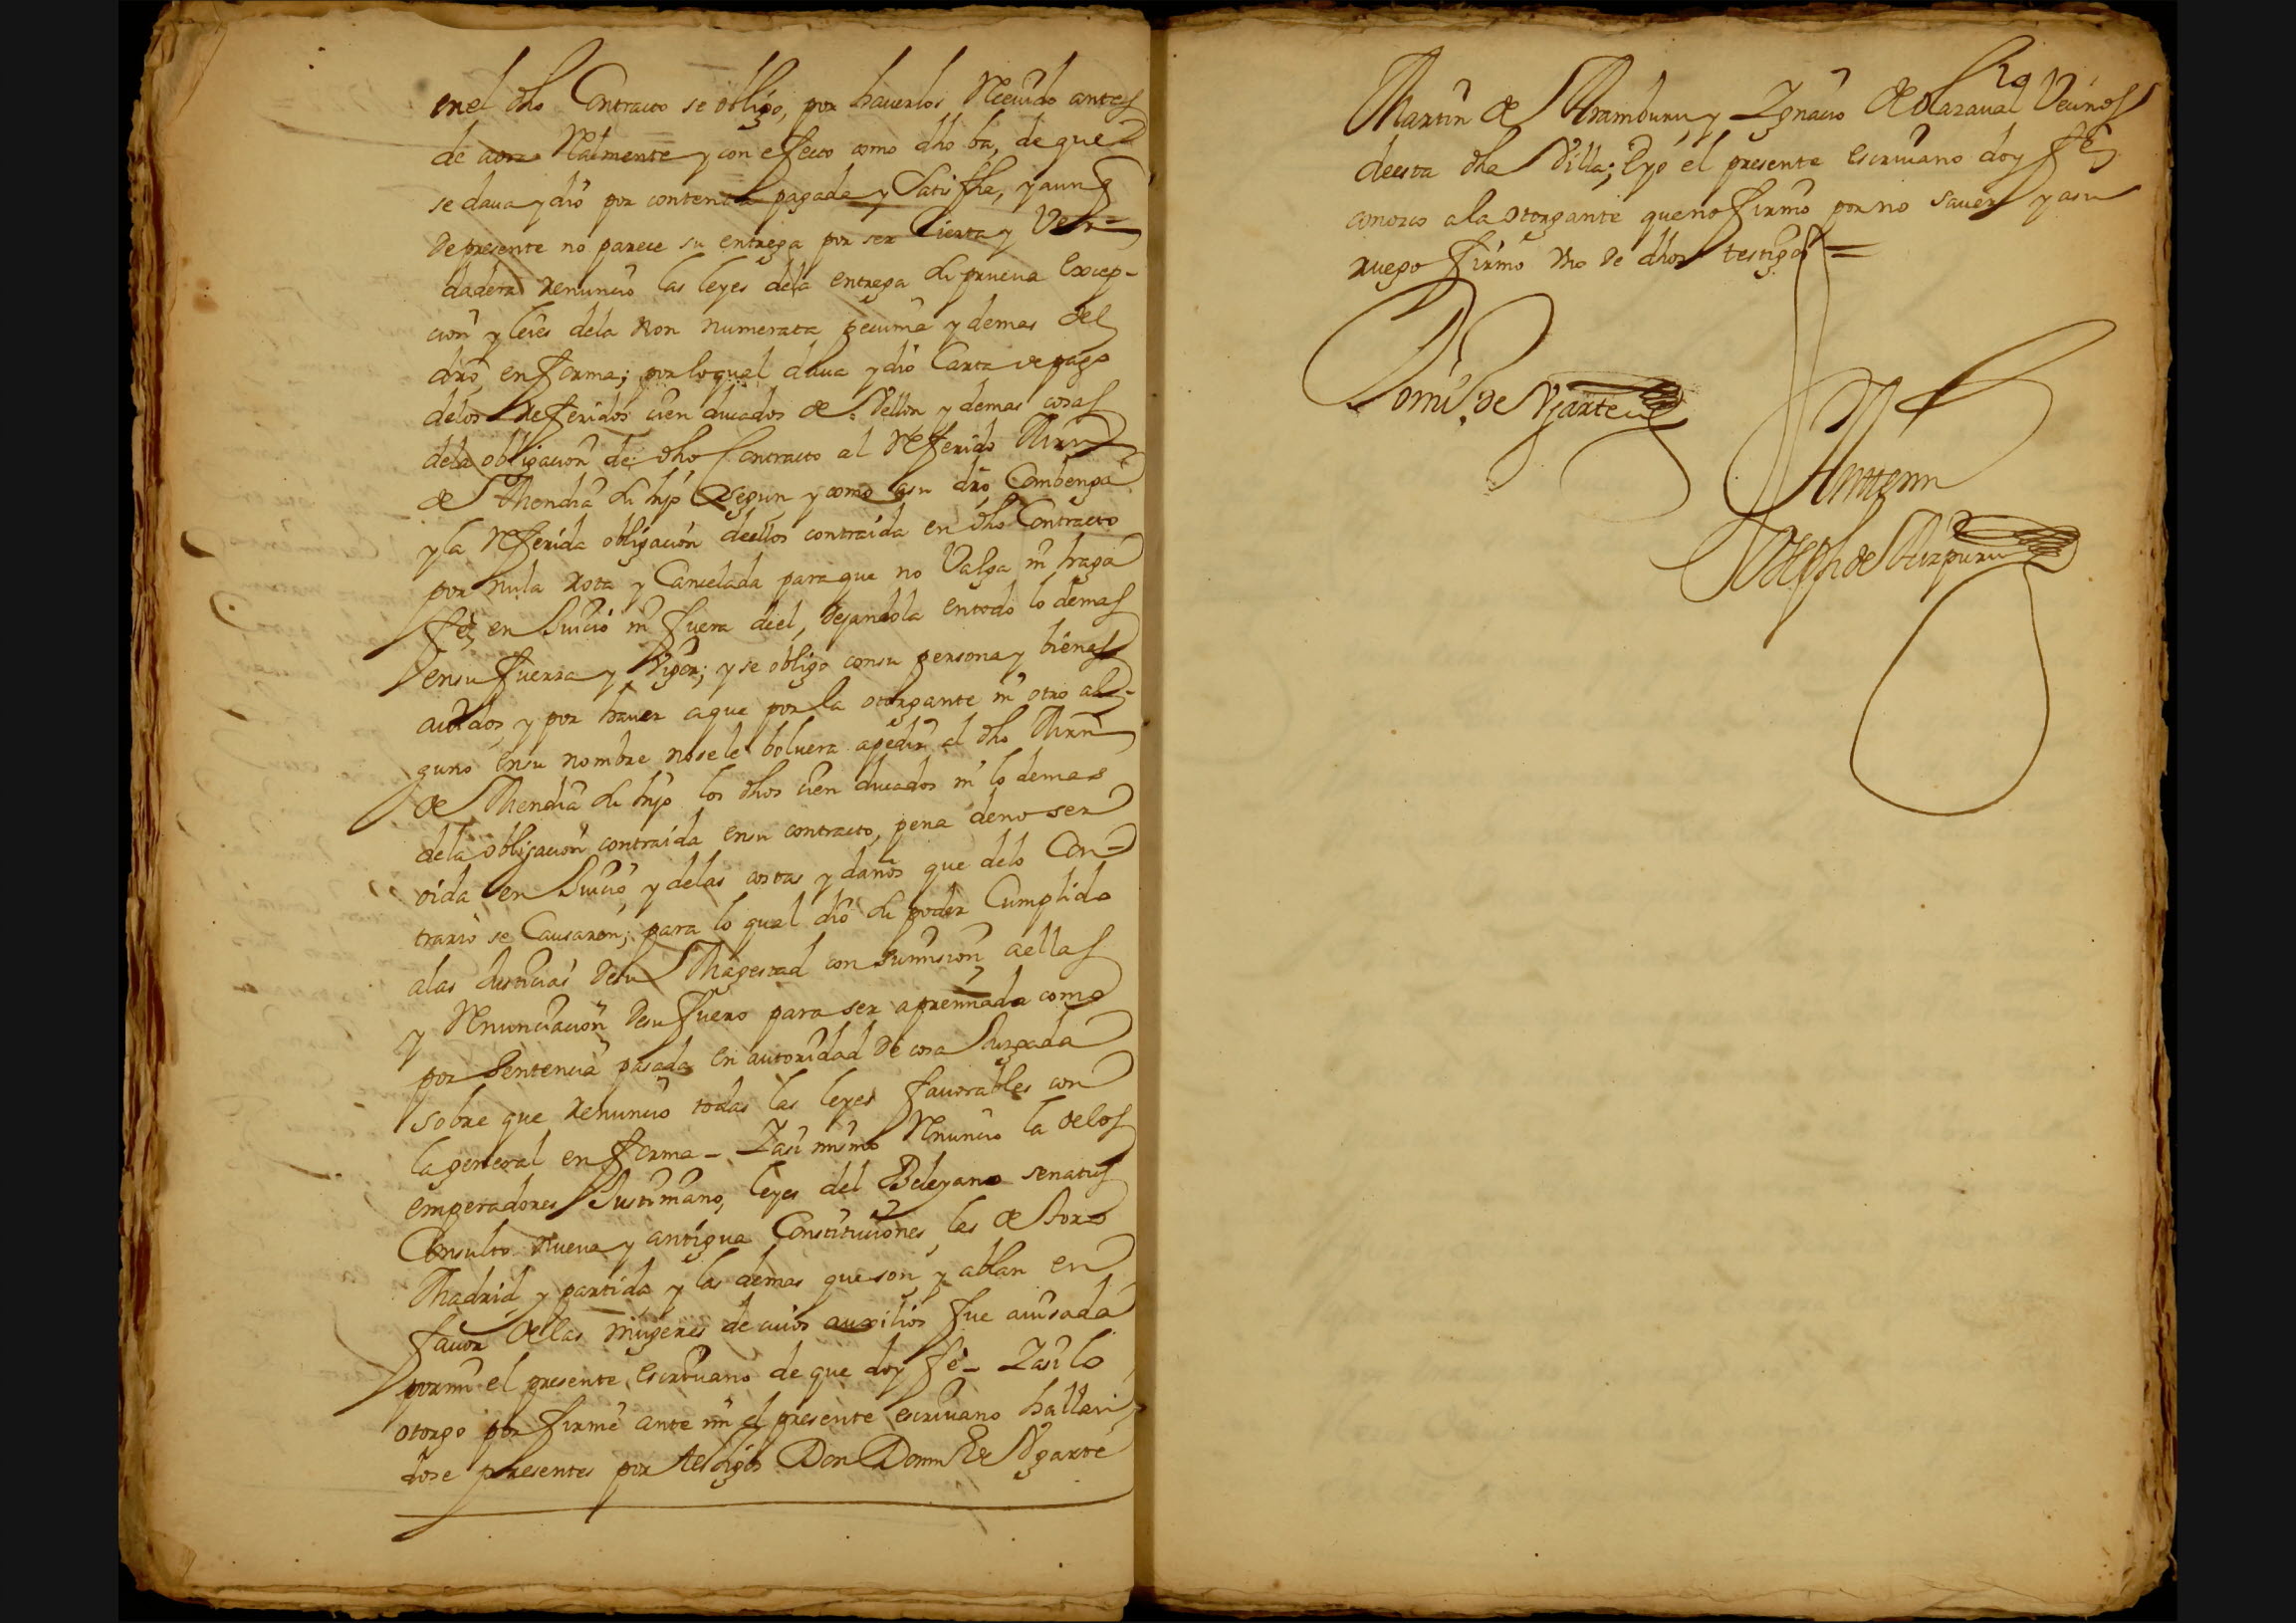 en el dho Contracto se obligo, por hauerlos Receuido antes
de aora Realmente y con efecto como dho ba, de que
se daua y dio por contenta pagada y Satisfha, y aunq
de presente no parece su entrega por ser Cierta y Ver=
dadera renuncio las leyes dela entrega su prueua excep-
cion y leies dela non numerata pecunia y demas del
dro en forma; por lo qual daua y dio Carta de pago
delos referidos cien ducados de Vellon y demas cosas
dela obligacion de dho Contracto al Referido Mrn
de Mendia su hijo segun y como a su dro Combenga
y la Referida obligacion de ellos contraida en dho Contracto
por nula rota y Cancelada para que no Valga ni haga
fee en Juicio ni fuera del, dejandola en todo lo demas
en su fuerza y Vigor; y se obligo con su persona y bienes
auidos y por hauer a que por la otorgante ni otro al-
guno en su nombre no se le boluera a pedir al dho Mrn
de Mendia su hijo los dhos cien ducados ni lo demas
dela obligacion contraida en su contracto, pena de no ser
oida en Juicio y delas costas y daños que delo Con-
trario se Causaren; para lo qual dio su poder Cumplido
alas Justicias de su Magestad con sumision a ellas
y Renunciacion de su fuero para ser apremiada como
por Sentencia pasada en autoridad de cosa Juzgada
sobre que renuncio todas las leyes fauorables con
la general en forma - Y asi mismo Renuncio la delos
emperadores Justiniano, leyes del Beleyano senatus
Consulto nueua y antigua Constituciones las de Toro
Madrid y partida y las demas que son y ablan en
fauor de las mugeres de cuios auxilios fue auisada
por mi el presente escriuano de que doy fe - Y asi lo
otorgo por firme ante mi el presente escriuano hallan-
dose presentes por testigos Don Domin de Vgarte
Martin de Aramburu y Ignacio de olazaual Vecinos
de esta dha Villa; E yo el presente escriuano doy fe
conozco a la otorgante que no firmo por no sauer y a su
ruego firmo vno de dhos testigos =
Domin. de Vgarte
Antemi
Joseph de Aizpuru